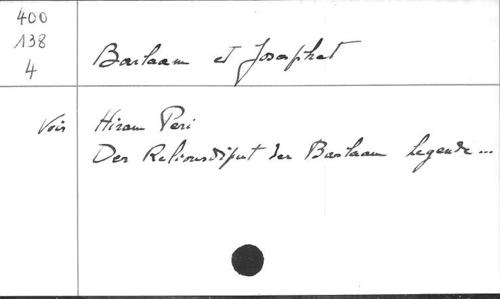 400
138
4
Barlaam et Josaphat
Voir Hiram Peri
Der Relionsdisput der Barlaam Legende...